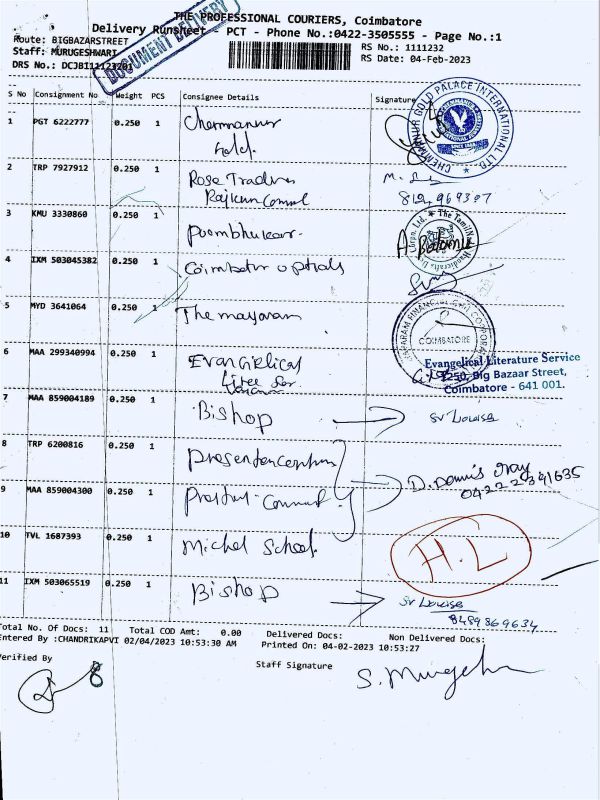 THE PROFESSIONAL COURIERS, Coimbatore
Delivery Runsheet - PCT - Phone No.:0422-3505555 - Page No.:1
Route: BIGBAZARSTREET
RS No.: 1111232
Staff: MURUGESHWARI
RS Date: 04-Feb-2023
DRS No.: DCJBI11123201
DOCUMENT DELIVERY
S No Consignment No Weight PCS Consignee Details Signature
1 PGT 6222777 0.250 1 Chemmanur
Gold.
CHEMMANUR GOLD PALACE INTERNATIONAL LTD.
2 TRP 7927912 0.250 1 Rose Traders
3 KMU 3330860 0.250 1 Poombhukar.
4 IXM 503045382 0.250 1 Coimbatur opticals
5 MYD 3641064 0.250 1 The mayaram
COIMBATORE
6 MAA 299340994 0.250 1 Evangelical
Evangelical Literature Service
1250, Big Bazaar Street,
Coimbatore - 641 001.
7 MAA 859004189 0.250 1 Bishop → Sr Louise
8 TRP 6200816 0.250 1
D. Dennis
0422 2391635
9 MAA 859004300 0.250 1
10 TVL 1687393 0.250 1 Michel School.
H.L
11 IXM 503065519 0.250 1 Bishop → Sr Louise
8489869634
Total No. Of Docs: 11 Total COD Amt: 0.00 Delivered Docs: Non Delivered Docs:
Entered By :CHANDRIKAPVI 02/04/2023 10:53:30 AM Printed On: 04-02-2023 10:53:27
Verified By Staff Signature